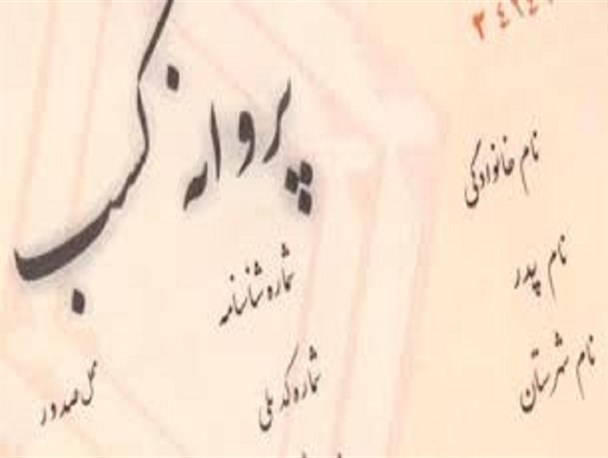 پروانه کسب
نام خانوادگی
نام پدر
شماره شناسنامه
نام شهرستان
شماره کد ملی
محل صدور